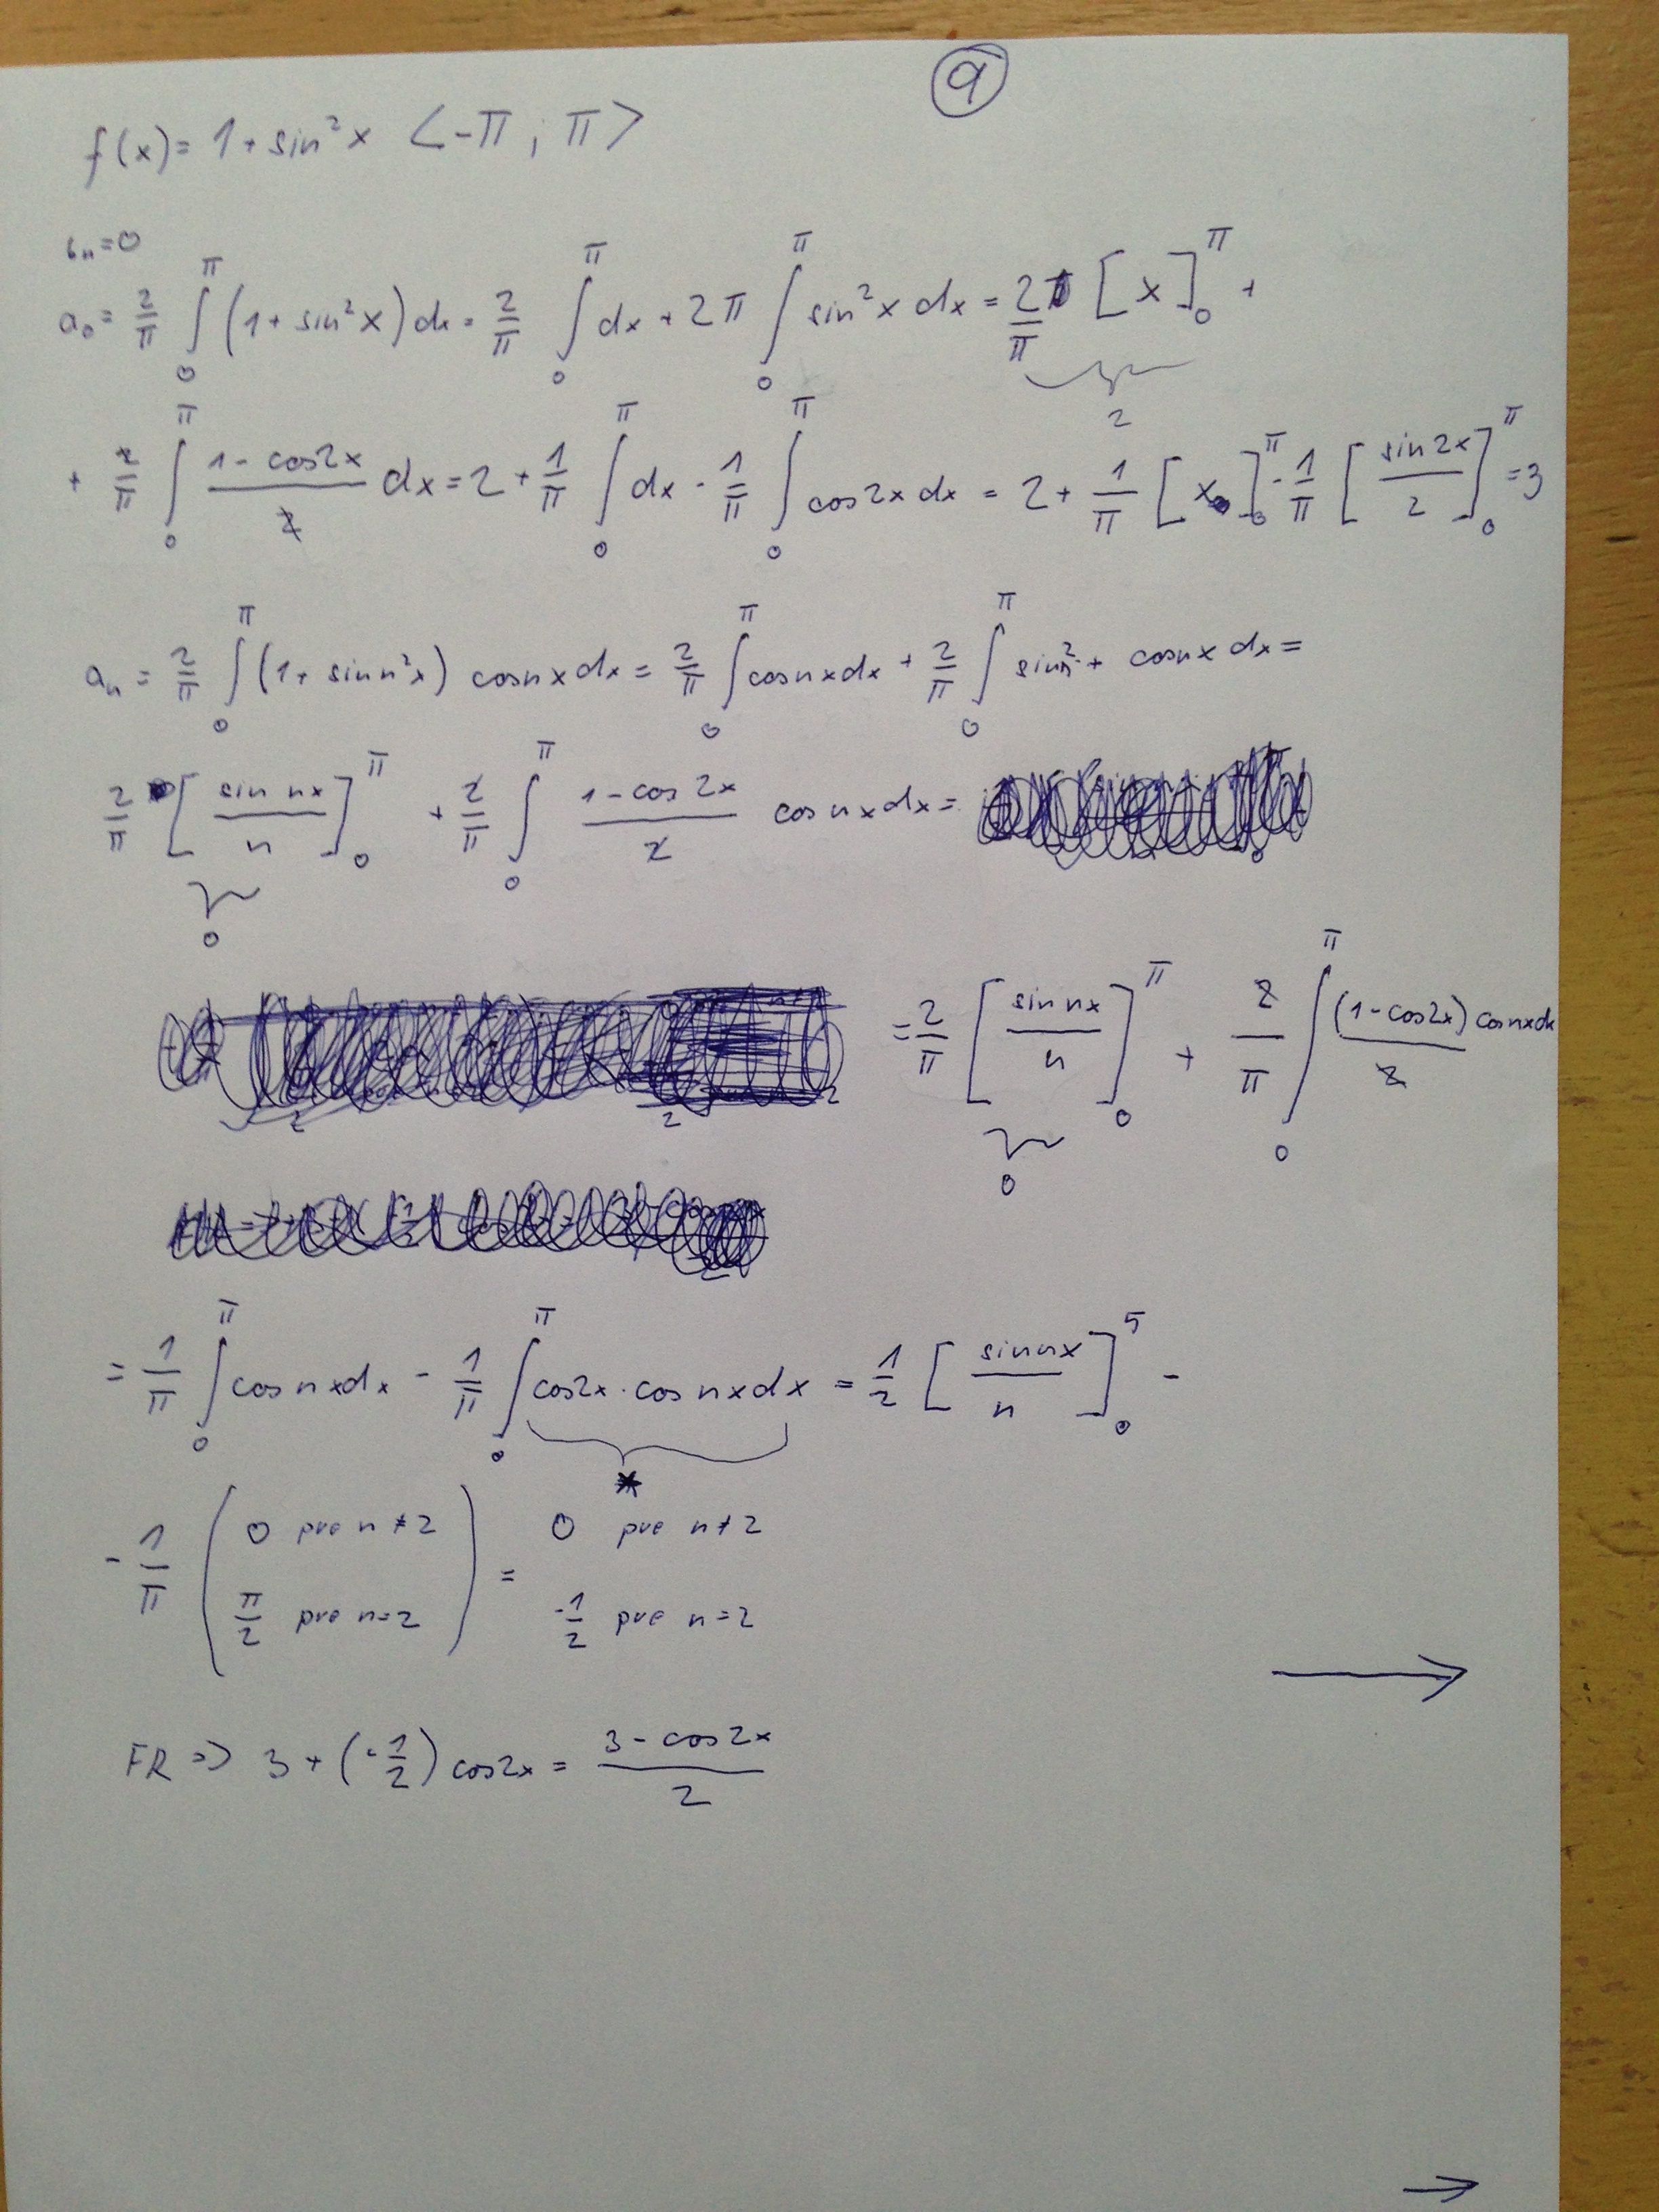 9
f(x) = 1 + sin²x <-π ; π>
bₙ = 0
a₀ = 2/π ∫₀^π (1 + sin²x) dx = 2/π ∫₀^π dx + 2π ∫₀^π sin²x dx = 2/π [x]₀^π +
2
+ 2/π ∫₀^π (1 - cos2x)/2 dx = 2 + 1/π ∫₀^π dx - 1/π ∫₀^π cos2x dx = 2 + 1/π [x]₀^π - 1/π [sin2x/2]₀^π = 3
aₙ = 2/π ∫₀^π (1 + sinn²x) cosnx dx = 2/π ∫₀^π cosnx dx + 2/π ∫₀^π sin² + cosnx dx =
2/π [sin nx/n]₀^π + 2/π ∫₀^π (1 - cos 2x)/2 cos nx dx =
0
= 2/π [sin nx/n]₀^π + 2/π ∫₀^π (1 - cos2x) cosnxdx/2
0
= 1/π ∫₀^π cos nxdx - 1/π ∫₀^π cos2x · cos nxdx = 1/2 [sinnx/n]₀^5 -
*
- 1/π ( 0 pre n ≠ 2 ) = 0 pre n ≠ 2
π/2 pre n = 2 -1/2 pre n = 2
→
FR => 3 + (-1/2) cos2x = (3 - cos2x)/2
→